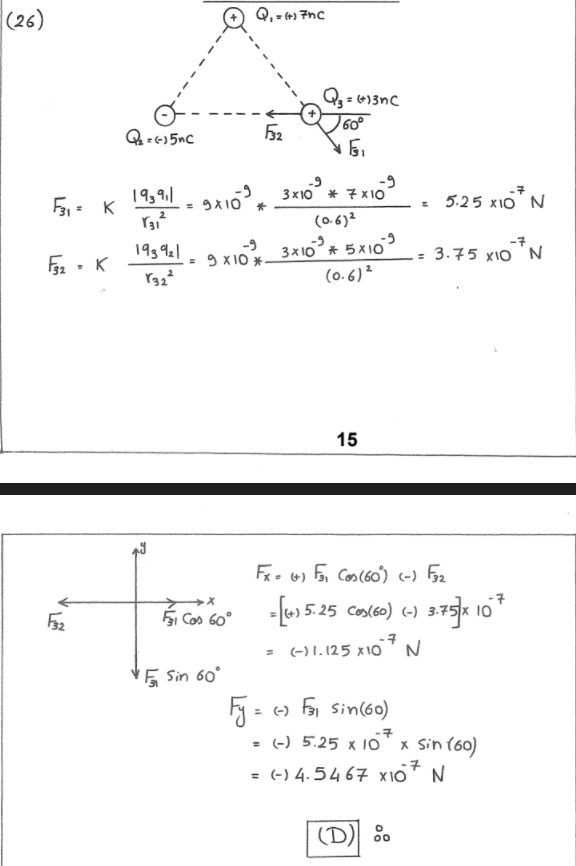 (26)
Q₁ = (+) 7nC
+
Q₃ = (+) 3nC
- +
60°
F₃₂
Q₂ = (-) 5nC
F₃₁
F₃₁ = K |q₃q₁| / r₃₁² = 9×10⁻⁹ * 3×10⁻⁹ * 7×10⁻⁹ / (0.6)² = 5.25 ×10⁻⁷ N
F₃₂ = K |q₃q₂| / r₃₂² = 9×10⁻⁹ * 3×10⁻⁹ * 5×10⁻⁹ / (0.6)² = 3.75 ×10⁻⁷ N
15
y
x
F₃₂
F₃₁ Cos 60°
F₃₁ Sin 60°
Fx = (+) F₃₁ Cos(60°) (-) F₃₂
= [(+) 5.25 Cos(60) (-) 3.75] × 10⁻⁷
= (-) 1.125 ×10⁻⁷ N
Fy = (-) F₃₁ Sin(60)
= (-) 5.25 × 10⁻⁷ × Sin(60)
= (-) 4.5467 ×10⁻⁷ N
(D)